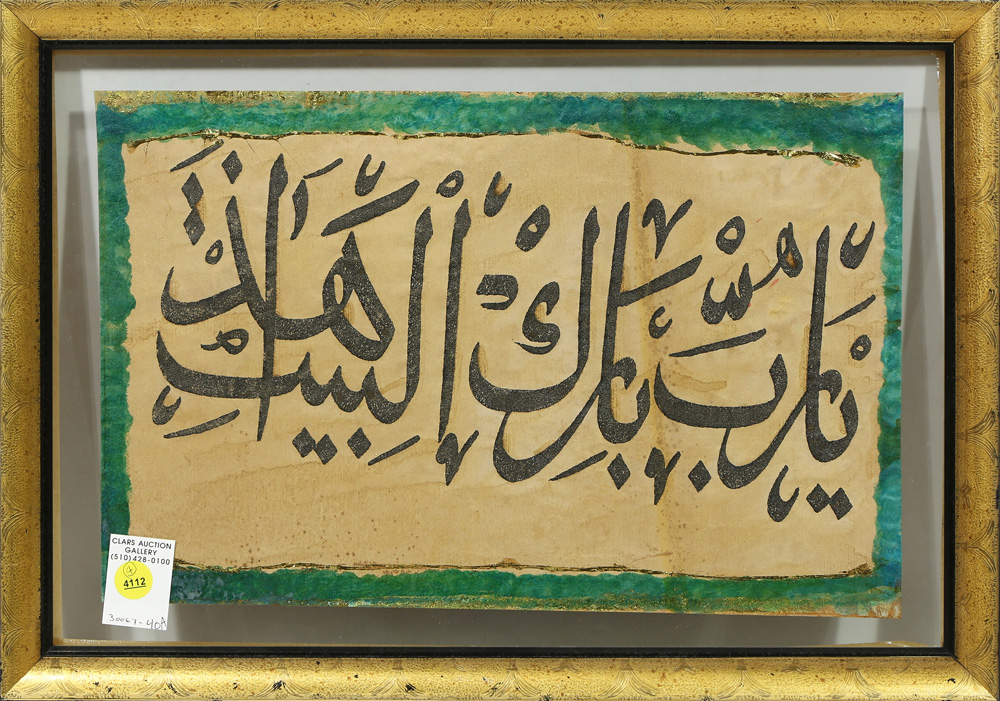 يا رب بارك هذا البيت
CLARS AUCTION
GALLERY
(510)428-0100
4
4112
30067-40A